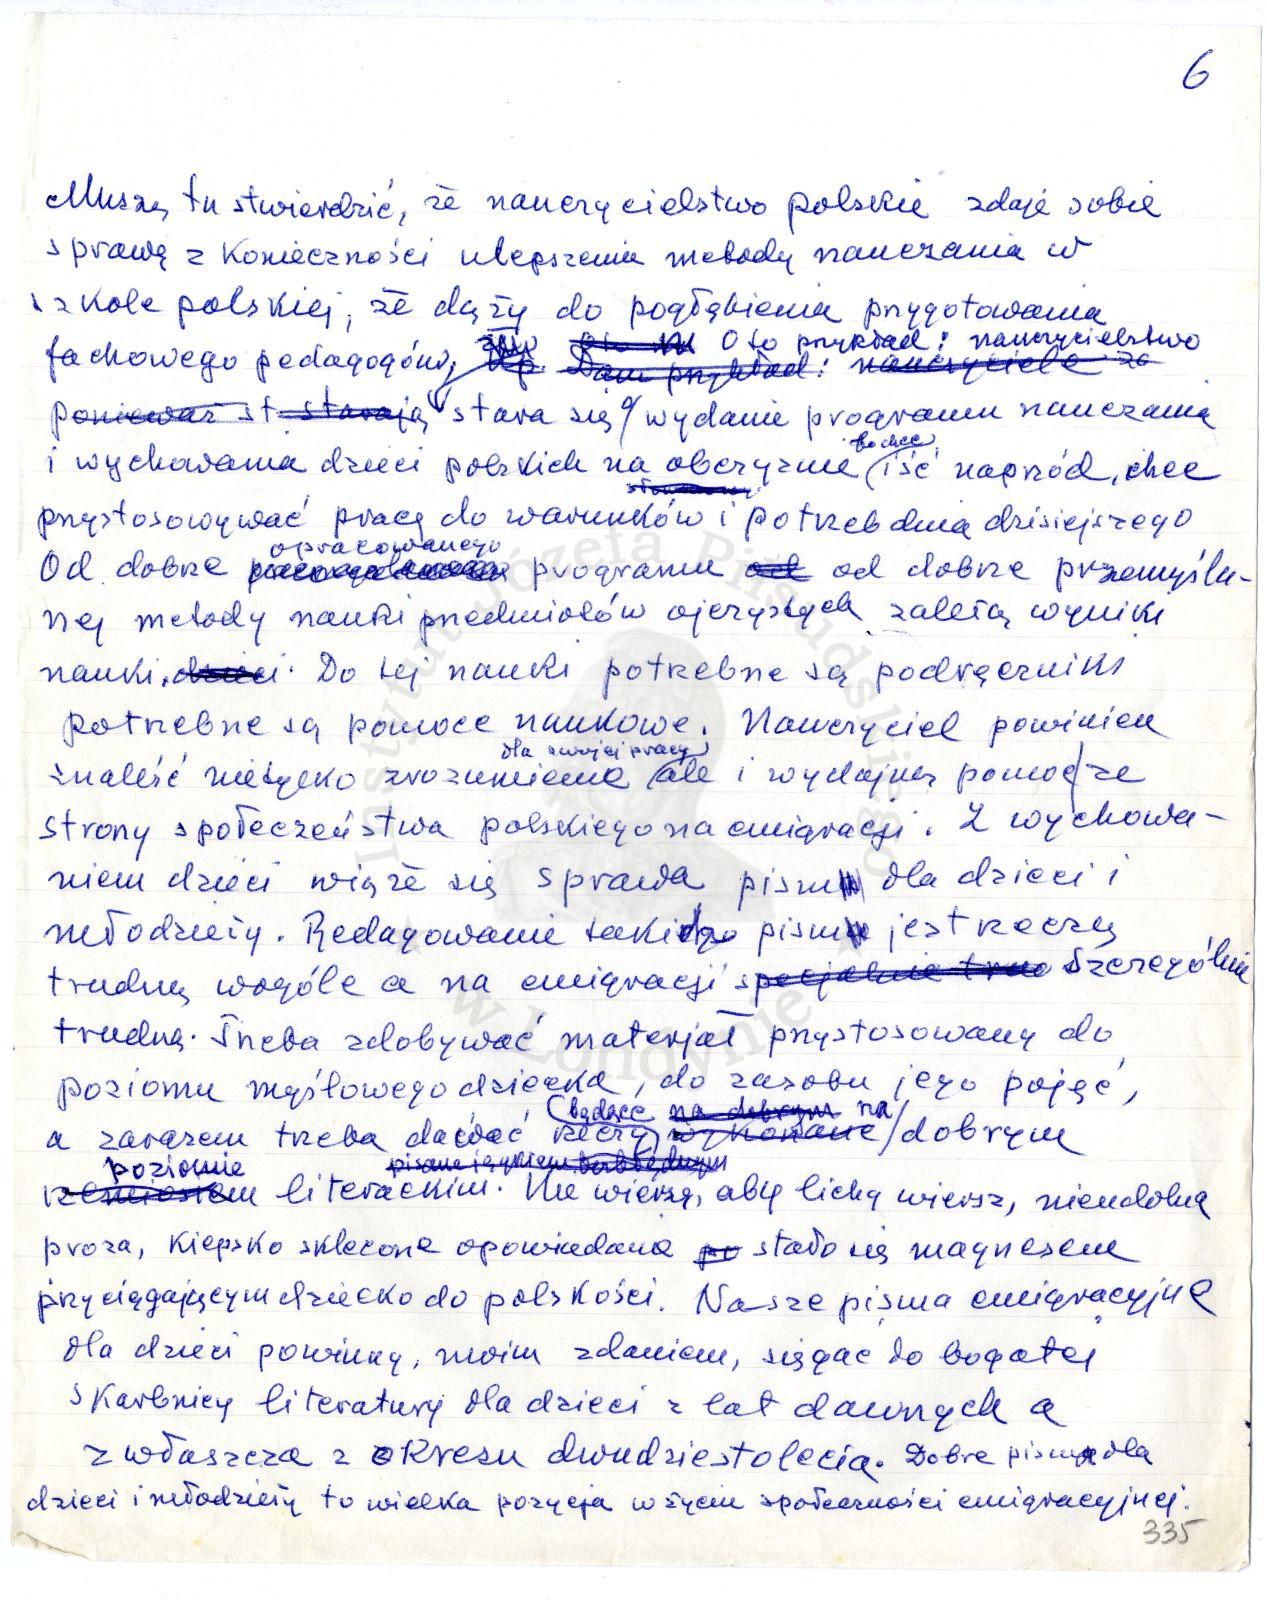 6
Muszę tu stwierdzić, że nauczycielstwo polskie zdaje sobie
sprawę z konieczności ulepszenia metody nauczania w
szkole polskiej, że dąży do pogłębienia przygotowania
Oto przykład: nauczycielstwo
fachowego pedagogów, Np. Dam przykład: nauczyciele za
ponieważ st starają stara się o wydanie programu nauczania
bo chce
i wychowania dzieci polskich na obczyźnie iść naprzód, chce
przystosowywać pracę do warunków i potrzeb dnia dzisiejszego
opracowanego
Od dobrze programu od od dobrze przemyśla-
nej metody nauki przedmiotów ojczystych zależą wyniki
nauki. dzieci. Do tej nauki potrzebne są podręczniki
potrzebne są pomoce naukowe. Nauczyciel powinien
dla swojej pracy
znaleść nietylko zrozumienie ale i wydajną pomoc ze
strony społeczeństwa polskiego na emigracji. Z wychowa-
niem dzieci wiąże się sprawa pism dla dzieci i
młodzieży. Redagowanie takiego pisma jest rzeczą
trudną wogóle a na emigracji specjalnie tru szczególnie
trudną. Trzeba zdobywać materjał przystosowany do
poziomu myślowego dziecka, do zasobu jego pojęć,
będące na dobrym na
a zarazem trzeba dawać rzeczy wykonane dobrym
poziomie pisane językiem bezbłędnym
literackim. Nie wierzę, aby lichy wiersz, nieudolna
proza, kiepsko sklecone opowiadanie po stało się magnesem
przyciągającym dziecko do polskości. Nasze pisma emigracyjne
dla dzieci powinny, moim zdaniem, sięgać do bogatej
skarbnicy literatury dla dzieci z lat dawnych a
zwłaszcza z okresu dwudziestolecia. Dobre pisma dla
dzieci i młodzieży to wielka pozycja w życiu społeczności emigracyjnej.
335
Instytut Józefa Piłsudskiego
w Londynie